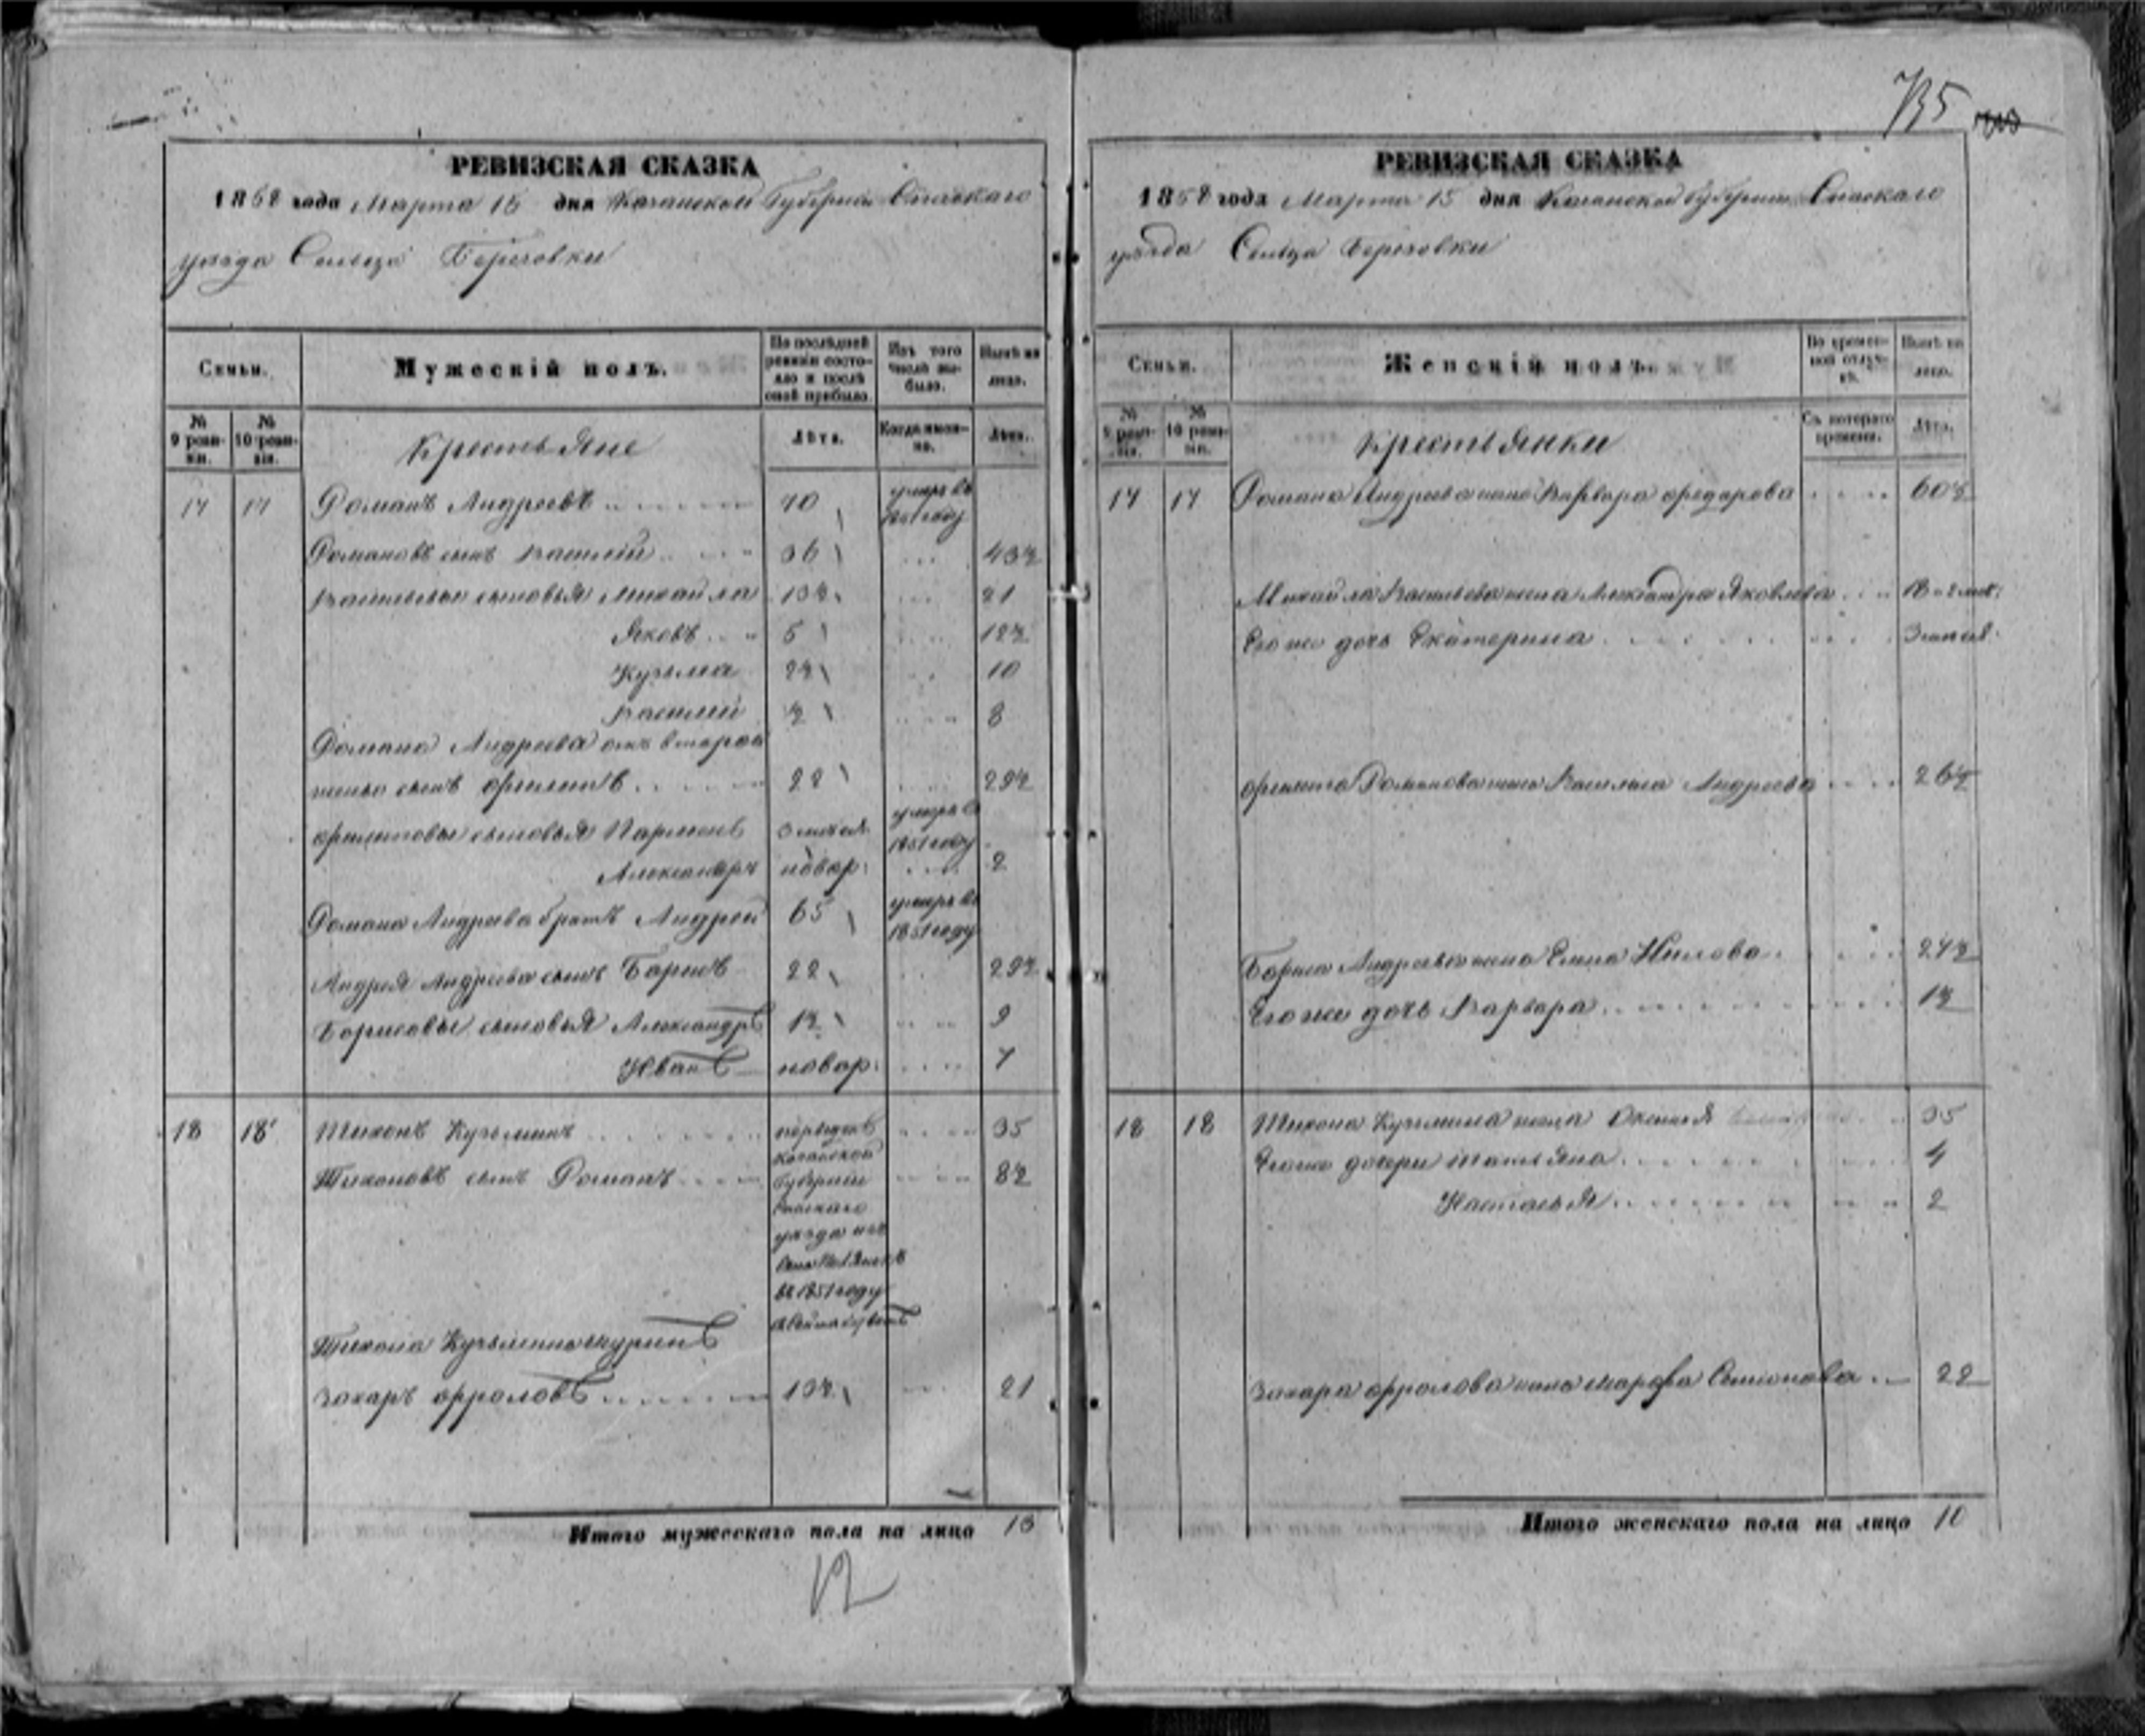 735
РЕВИЗСКАЯ СКАЗКА
1858 года Марта 15 дня Казанской Губернии Спаскаго
уезда Сельца Березовки
Семьи.
Мужескій полъ.
По последней ревизіи состояло и после оной прибыло.
Изъ того числа выбыло.
Ныне на лицо.
№ 9 ревизіи.
№ 10 ревизіи.
Крестьяне
Лѣта.
Когда именно.
Лѣта.
17 17 Романъ Андреевъ 70 умеръ въ 1851 году
Романовъ сынъ Василій 36 43½
Васильевы сыновья Михайла 13½ 21
Яковъ 5 12½
Кузьма 2½ 10
Василій ½ 8
Романа Андреева отъ второй
жены сынъ Филипъ 22 29½
Филиповы сыновья Парменъ 3 недел. умеръ въ 1851 году
Александръ новор: 2
Романа Андреева братъ Андрей 65 умеръ въ 1851 году
Андрея Андреева сынъ Борисъ 22 29½
Борисовы сыновья Александръ 1½ 9
Иванъ новор: 7
18 18 Тихонъ Кузьминъ 35
Тихоновъ сынъ Романъ 8½
Казанской
Губерніи
Спаскаго
уезда изъ
въ 1851 году
Тихона Кузьмина шуринъ
Захаръ Фроловъ 13½ 21
Итого мужескаго пола на лицо 13
12
РЕВИЗСКАЯ СКАЗКА
1858 года Марта 15 дня Казанской Губернии Спаскаго
уезда Сельца Березовки
Семьи.
Женскій полъ.
Во временной отлучкѣ.
Ныне на лицо.
№ 9 ревизіи.
№ 10 ревизіи.
Крестьянки
Съ котораго времени.
Лѣта.
17 17 Романа Андреева жена Варвара Федорова 60½
Михайла Васильева жена Александра Яковлева
Его же дочь Екатерина
Филипа Романова жена Василиса Андреева 26½
Бориса Андреева жена Елена Нилова 27½
Его же дочь Варвара 1½
18 18 Тихона Кузьмина жена Оксинья 35
Его же дочери Татьяна 4
Настасья 2
Захара Фролова жена Марфа Семионова 22
Итого женскаго пола на лицо 10